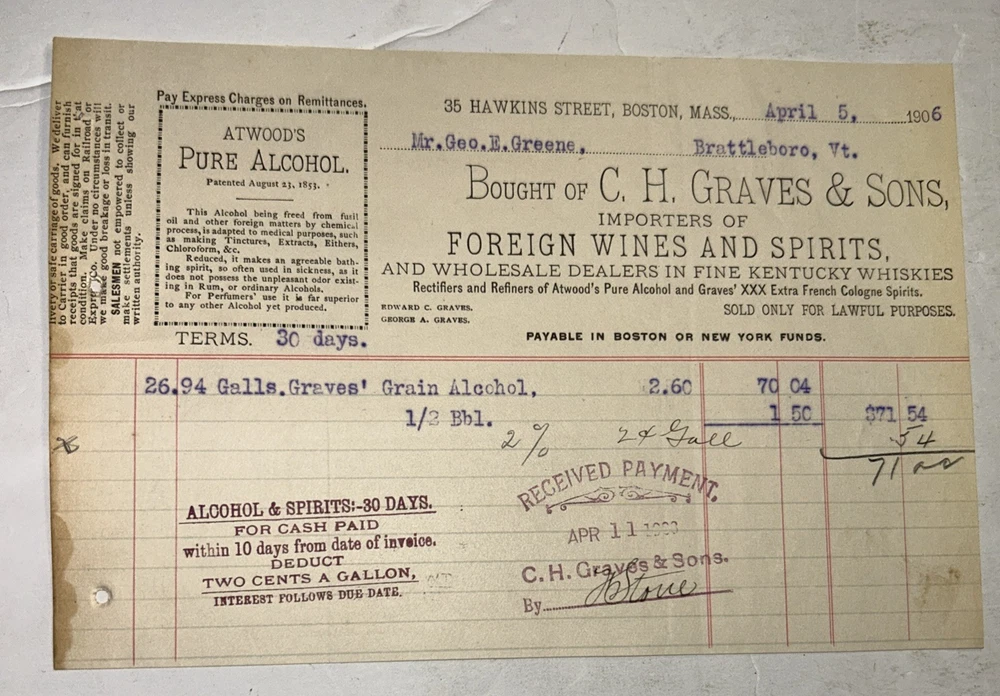 livery or safe carriage of goods. We deliver
to Carrier in good order, and can furnish
receipts that goods are signed for in that
condition. Make claims on Railroad or
Express Co. Under no circumstances will
we make good breakage or loss in transit.
SALESMEN not empowered to collect or
make settlements unless showing our
written authority.
Pay Express Charges on Remittances.
ATWOOD'S
PURE ALCOHOL.
Patented August 23, 1853.
This Alcohol being freed from fusil
oil and other foreign matters by chemical
process, is adapted to medical purposes, such
as making Tinctures, Extracts, Eithers,
Chloroform, &c.
Reduced, it makes an agreeable bath-
ing spirit, so often used in sickness, as it
does not possess the unpleasant odor exist-
ing in Rum, or ordinary Alcohols.
For Perfumers' use it is far superior
to any other Alcohol yet produced.
TERMS. 30 days.
35 HAWKINS STREET, BOSTON, MASS., April 5, 1906
Mr. Geo. E. Greene, Brattleboro, Vt.
BOUGHT OF C. H. GRAVES & SONS,
IMPORTERS OF
FOREIGN WINES AND SPIRITS,
AND WHOLESALE DEALERS IN FINE KENTUCKY WHISKIES
Rectifiers and Refiners of Atwood's Pure Alcohol and Graves' XXX Extra French Cologne Spirits.
EDWARD C. GRAVES.
GEORGE A. GRAVES.
SOLD ONLY FOR LAWFUL PURPOSES.
PAYABLE IN BOSTON OR NEW YORK FUNDS.
26.94 Galls. Graves' Grain Alcohol, 2.60 70 04
1/2 Bbl. 1 50 $71 54
2% 2¢ Gall 54
71 00
ALCOHOL & SPIRITS:-30 DAYS.
FOR CASH PAID
within 10 days from date of invoice.
DEDUCT
TWO CENTS A GALLON,
INTEREST FOLLOWS DUE DATE.
RECEIVED PAYMENT.
APR 11
C. H. Graves & Sons.
By Stone